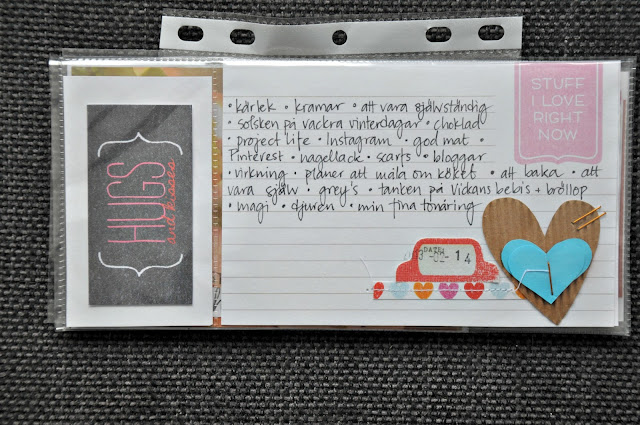 HUGS
and kisses
STUFF
I LOVE
RIGHT
NOW
• kärlek • kramar • att vara självständig
• solsken på vackra vinterdagar • choklad
• project life • Instagram • god mat •
Pinterest • nagellack • scarfs • bloggar
• virkning • planer att måla om köket • att baka • att
vara själv • grey's • tanken på Vickans bebis + bröllop
• magi • djuren • min fina tonåring •
14